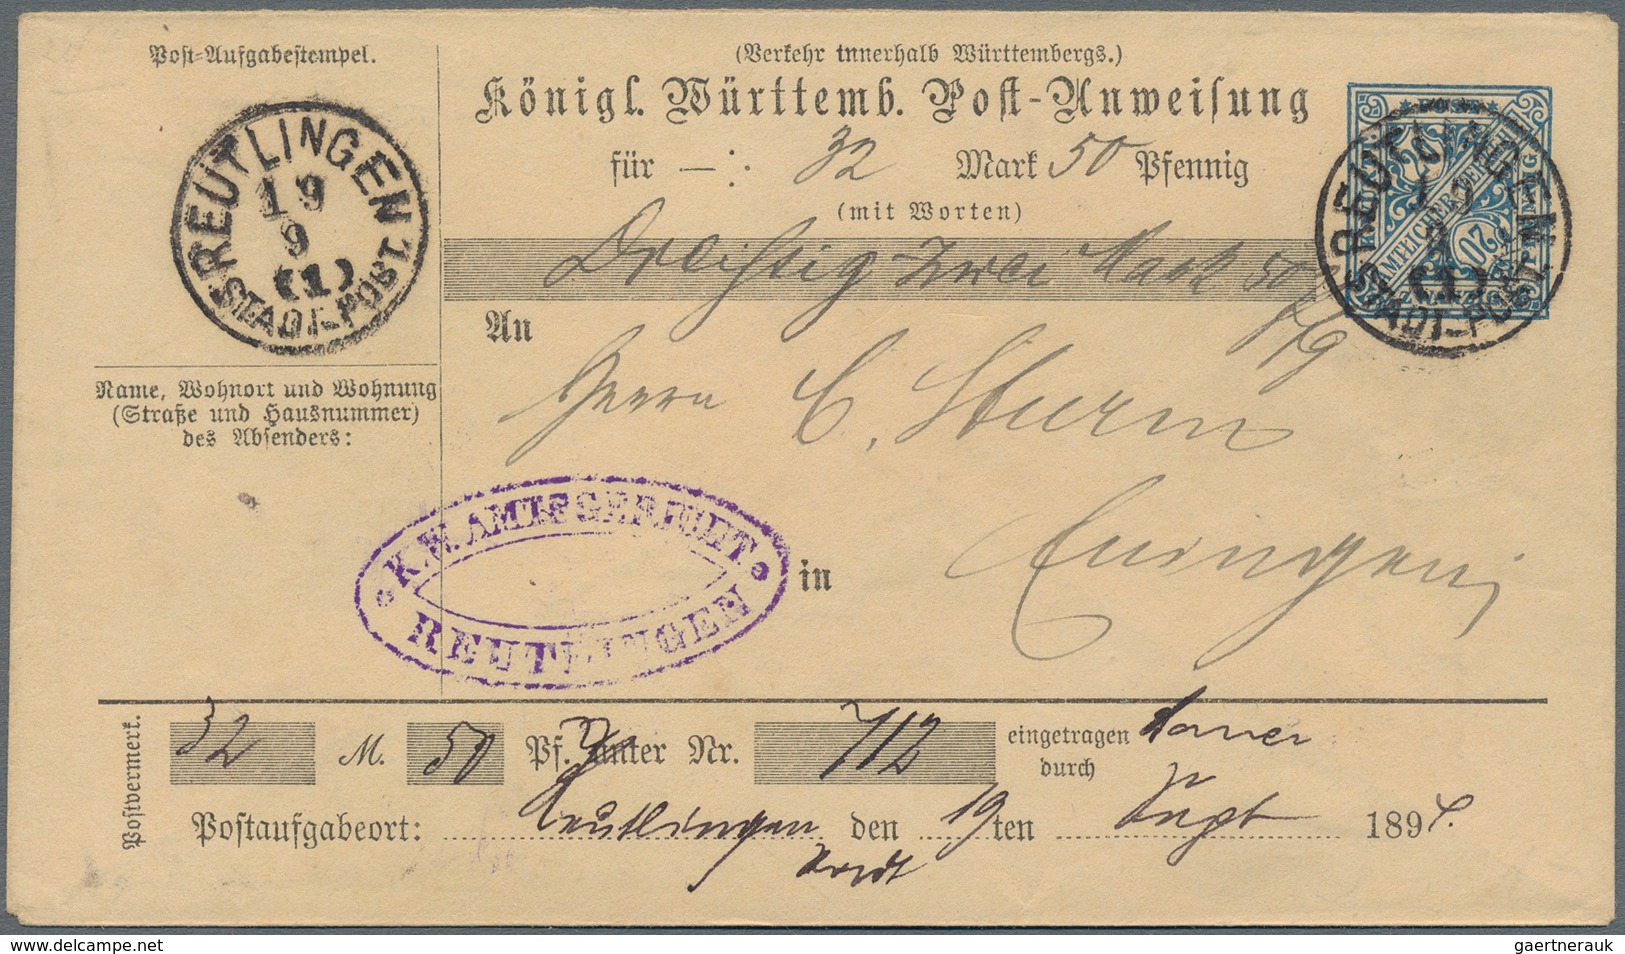 Post-Aufgabestempel.
(Verkehr innerhalb Württembergs.)
Königl. Württemb. Post-Anweisung
für —: 32 Mark 50 Pfennig
(mit Worten)
Dreißig zwei Mark 50
Pfg
REUTLINGEN 1
19
9
(1)
STADT-POST
REUTLINGEN
19
9
(1)
STADT-POST
AMTLICHER
20
An
Herrn C. Sturm
Name, Wohnort und Wohnung
(Straße und Hausnummer)
des Absenders:
K.W. AMTSGERICHT
REUTLINGEN
in Eningen
Postvermerk.
32 M. 50 Pf. unter Nr. 712 eingetragen
durch
Postaufgabeort: Reutlingen den 19ten Sept 1894.
gaertnerauk